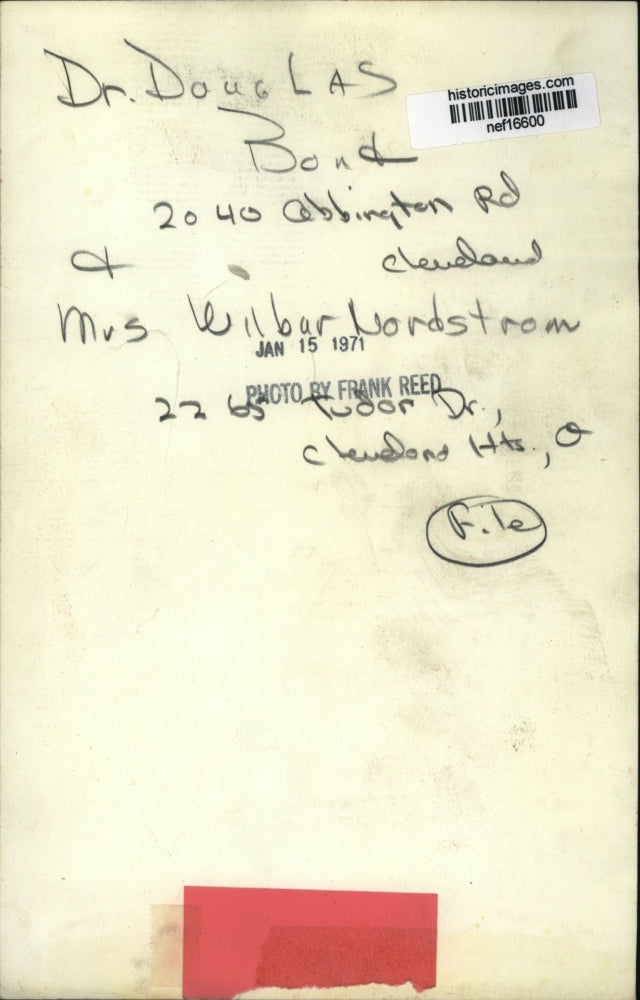 historicimages.com
nef16600
Dr. DougLAS
Bond
2040 Abbington Rd
& Cleveland
Mrs Wilbur Nordstrom
JAN 15 1971
PHOTO BY FRANK REED
2265 Tudor Dr.,
Cleveland Hts., O
File